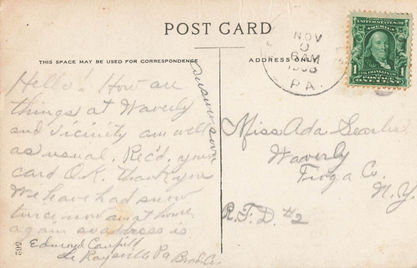 POST CARD
THIS SPACE MAY BE USED FOR CORRESPONDENCE
ADDRESS ONLY
NOV
6 AM
PA.
Hello! How are
things at Waverly
and Vicinity am well
as usual. Rec'd. your
card O.K. thank you
We have had snow
twice, now am at home
again so address is
Edmond
Le Raysville Pa Brad. Co.
answer soon
Miss Ada Searles,
Waverly
Tioga Co.
N.Y.
R.F.D. #2